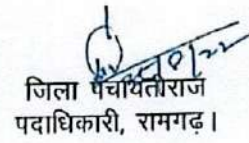 जिला पंचायतीराज
पदाधिकारी, रामगढ़।